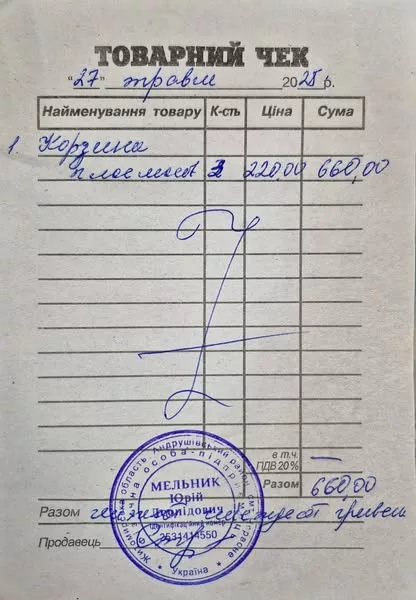 ТОВАРНИЙ ЧЕК
"27" травня 2025 р.
Найменування товару К-сть Ціна Сума
1. Корзина
пластмасова 3 220,00 660,00
в т.ч. ПДВ 20% —
Разом 660,00
Разом шістсот шістдесят гривень
Продавець
МЕЛЬНИК
Юрій
Леонідович
ідентифікаційний номер
2531414550
Житомирська область, Андрушівський район, смт
фізична особа-підприємець
* Україна *